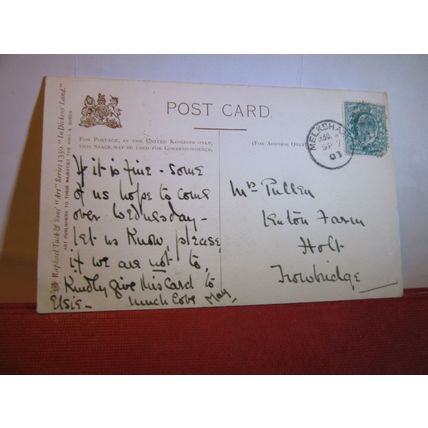 POST CARD.
FOR POSTAGE, IN THE UNITED KINGDOM ONLY,
THIS SPACE MAY BE USED FOR CORRESPONDENCE.
(FOR ADDRESS ONLY)
Raphael Tuck & Sons' "Art" Series 1330. "In Dickens' Land."
ART PUBLISHERS TO THEIR MAJESTIES THE KING & QUEEN
MELKSHAM
SP 7
03
If it is fine - some
of us hope to come
over Wednesday -
let us know, please
if we are not to,
Kindly give this card to
Elsie - much love May
Mrs Pullen
Farm
Holt
Trowbridge